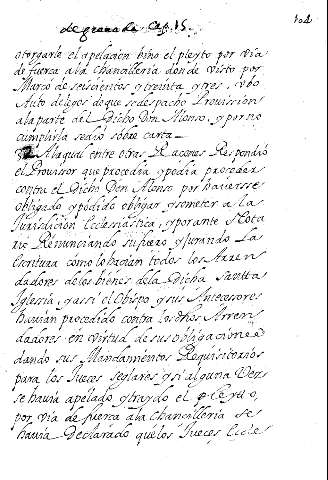 de granada Cap. 15.
104
otorgarle el apelacion bino el pleyto por via
de fuerça a la Chancilleria donde visto por
Março de seiscientos y treinta y tres, vbo
Auto de legos de que se despacho Provission
a la parte del Dicho Don Alonso, y por no
cumplirla se dio sobre carta
A la qual entre otras Raçones Respondio
el Provisor que procedia y podia proceder
contra el Dicho Don Alonso por haverse
obligado y podido obligar y someter a la
Jurisdicion Ecclesiastica, y por ante Nota
rio Renunciando su fuero y jurando La
escritura como lo hacian todos los Arren
dadores de los bienes de la Dicha Santa
Iglesia, y assi el Obispo y sus Antecesores
havian procedido contra los dhos Arren
dadores en virtud de sus obligaciones
dando sus Mandamientos Requisitorios
para los Jueces seglares y si alguna Vez
se havia apelado y traydo el pleyto,
por via de fuerca a la Chancilleria se
havia Declarado que los Jueces Eccles